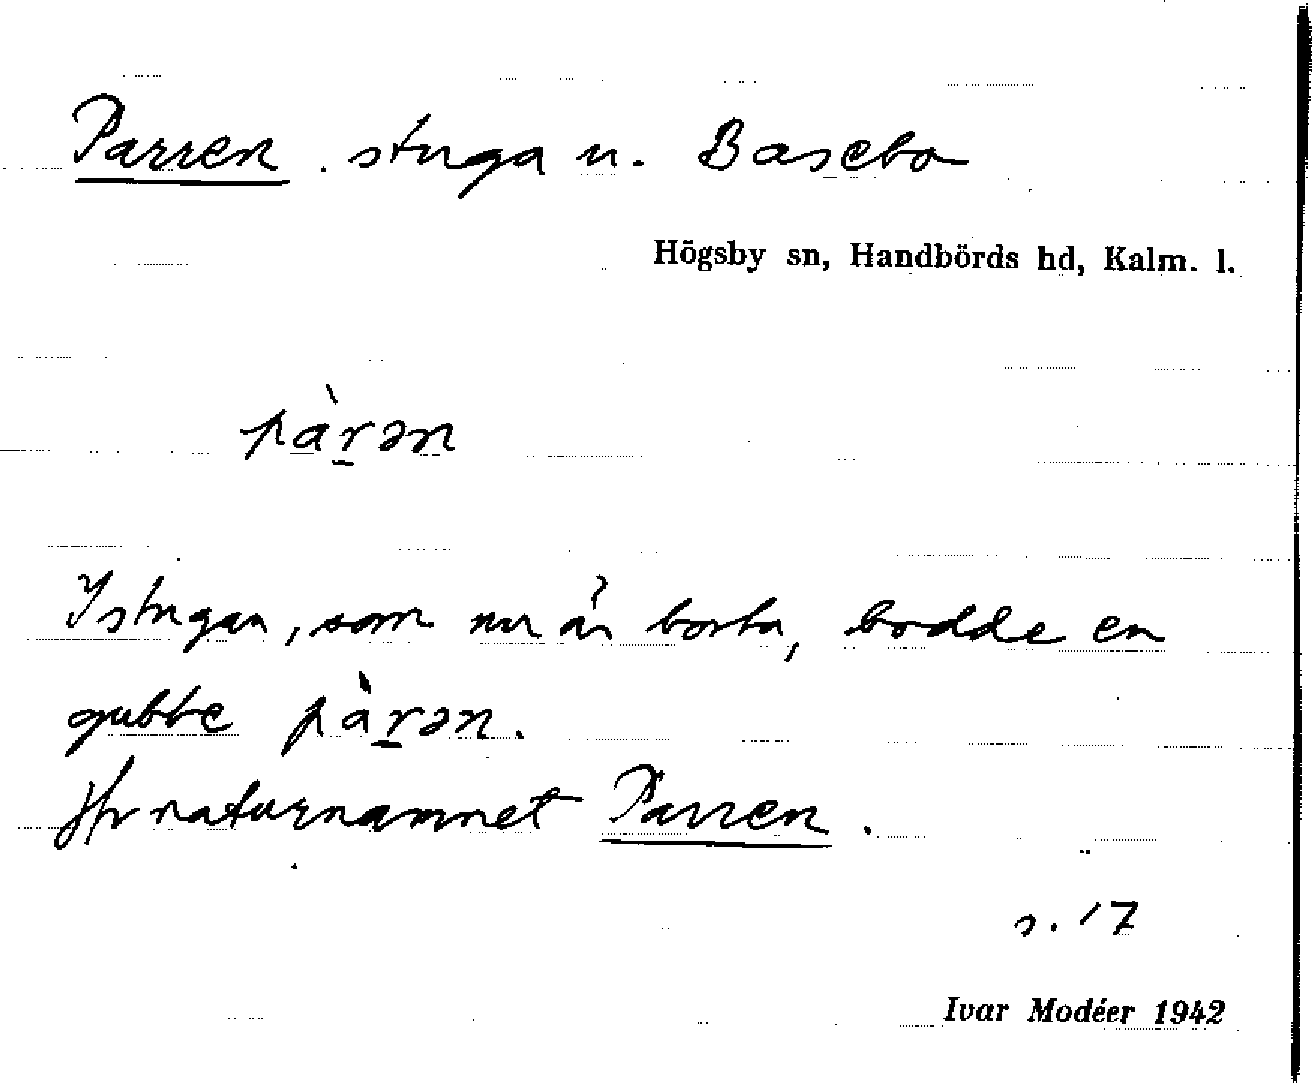 Parren . stuga u. Basebo
Högsby sn, Handbörds hd, Kalm. l.
pàr̠ən
I stugan, som nu är borta, bodde en
gubbe pàr̠ən.
Jfr naturnamnet Parren .
s. 17
Ivar Modéer 1942